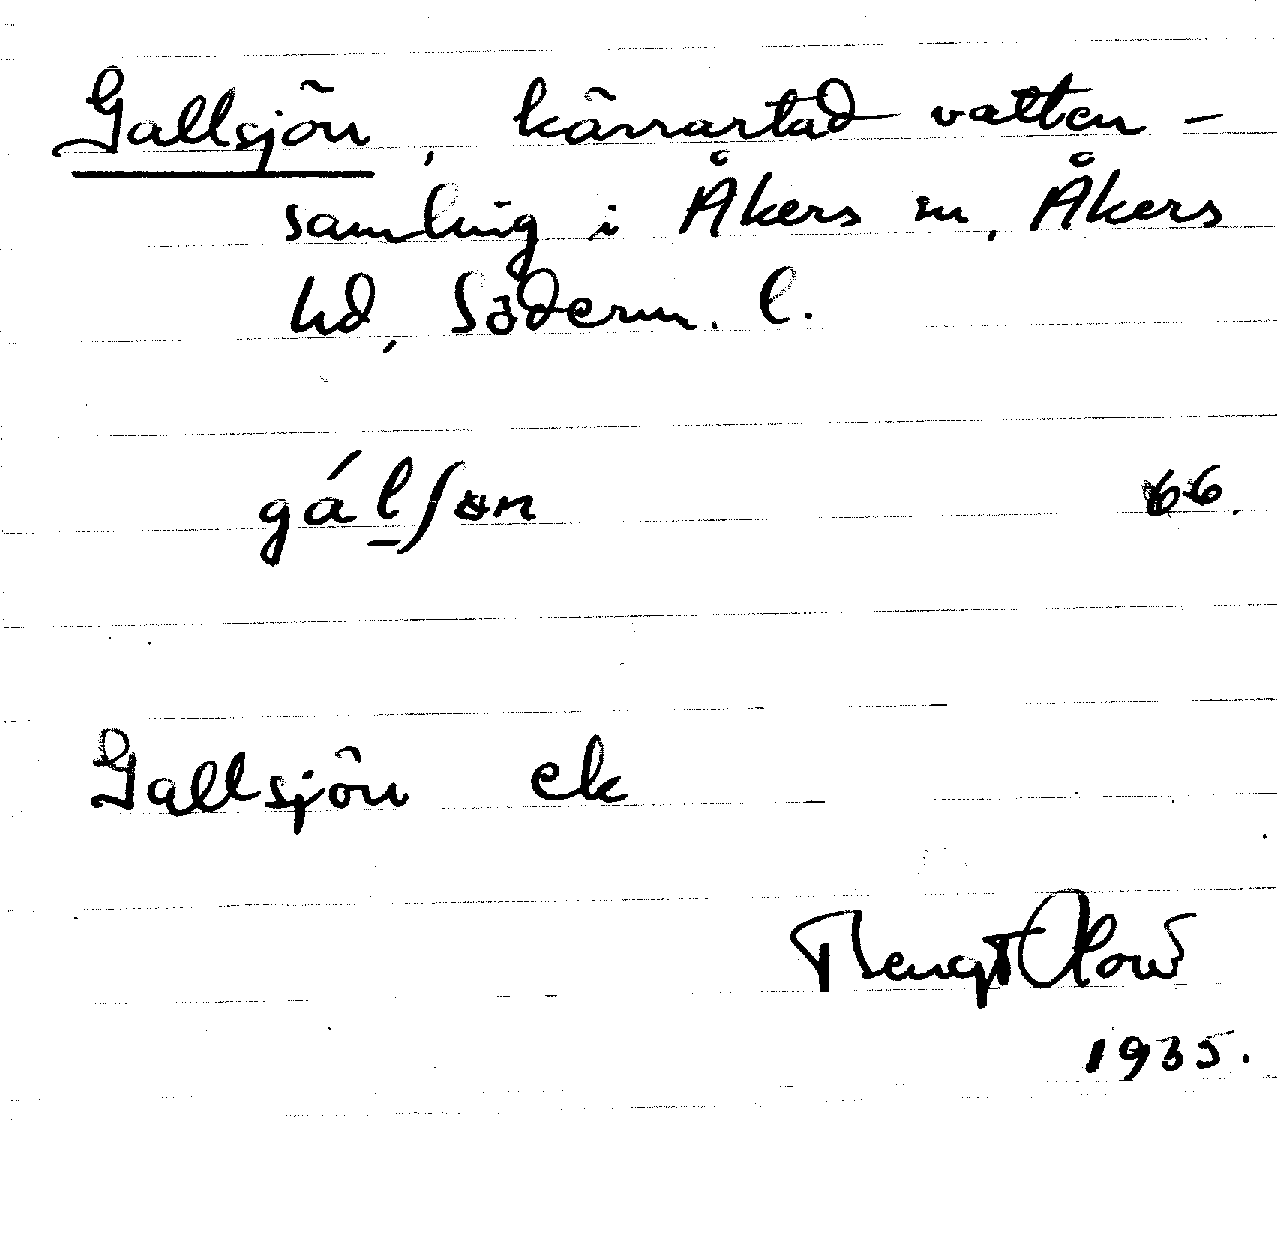 Gallsjön, kärrartad vatten-
samling i Åkers sn, Åkers
hd, Söderm. l.
gálʃɵn 66.
Gallsjön ek
Bengt Olow
1935.